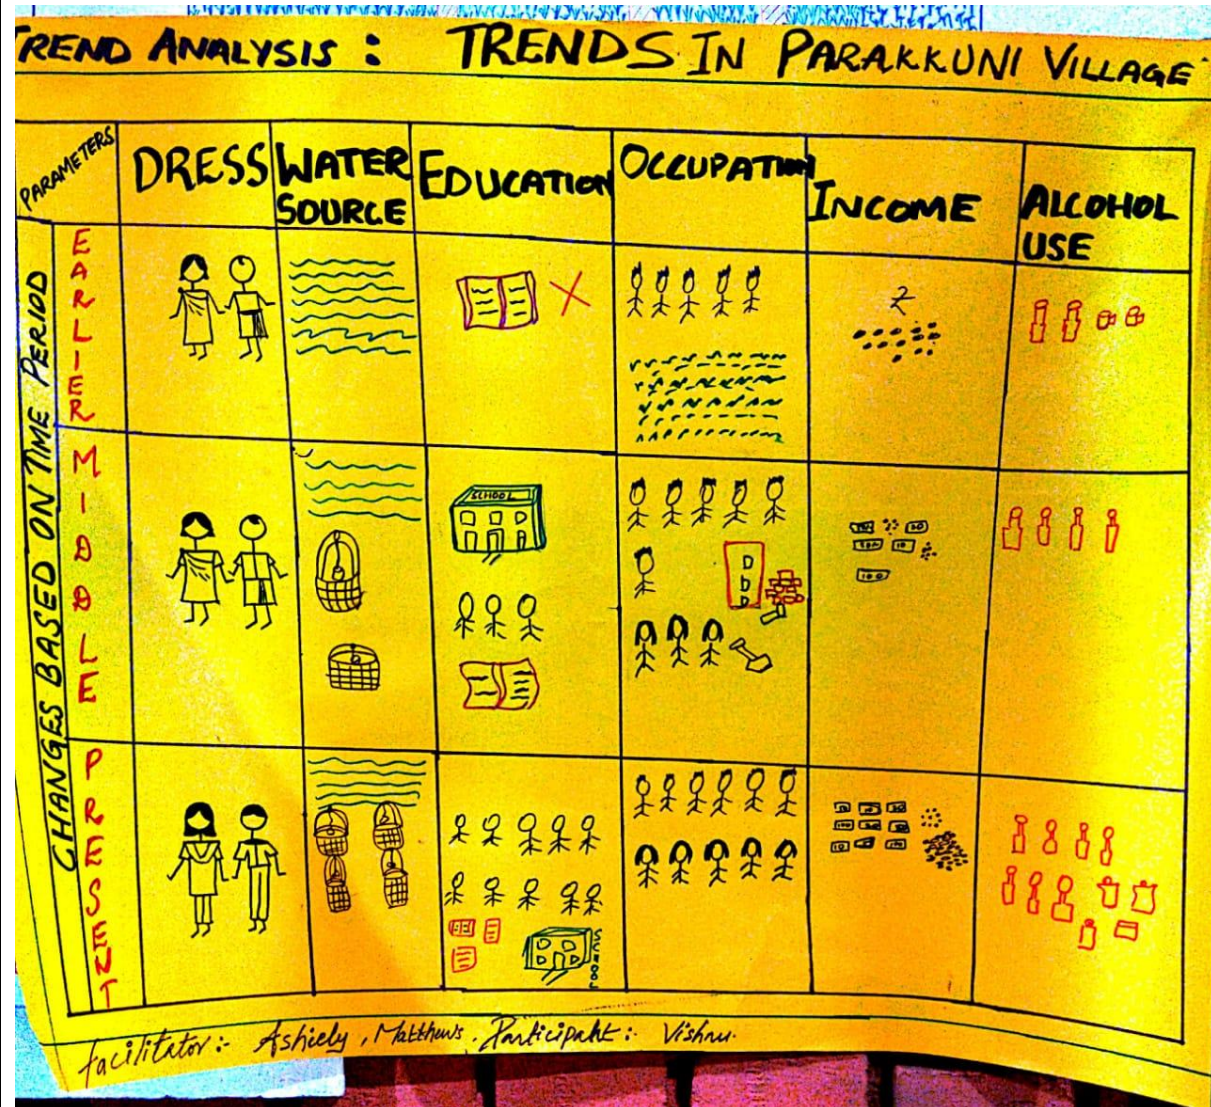 TREND ANALYSIS : TRENDS IN PARAKKUNI VILLAGE
PARAMETERS
DRESS
WATER
SOURCE
EDUCATION
OCCUPATION
INCOME
ALCOHOL
USE
CHANGES BASED ON TIME PERIOD
EARLIER
MIDDLE
SCHOOL
100
PRESENT
SCHOOL
facilitator:- Ashiely, Matthews. Participant:- Vishnu.